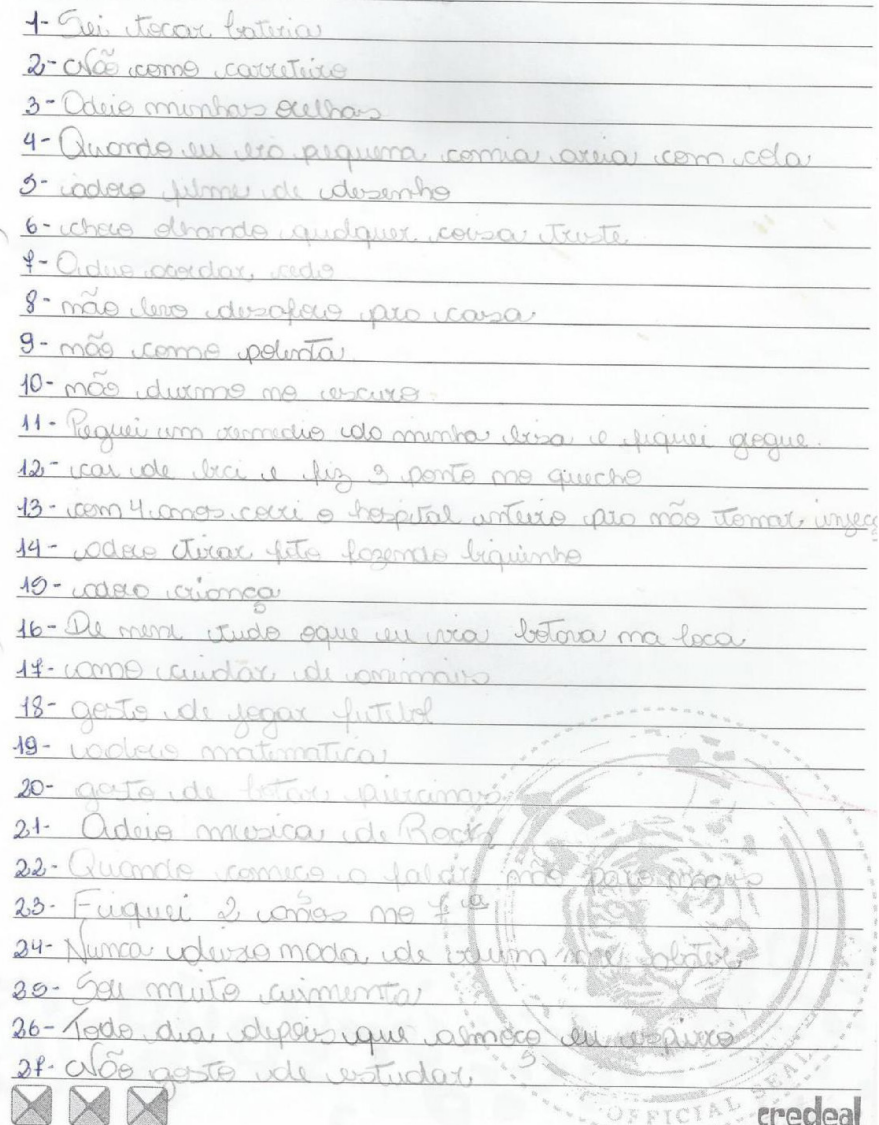 1- Sei tocar bateria
2- Não como carreteiro
3- Odeio minhas orelhas
4- Quando eu era piquena comia areia com cola
5- adoro filme de desenho
6- choro olhando qualquer coisa triste
7- Odeio acordar cedo
8- não levo desaforo pra casa
9- não como polenta
10- não durmo no escuro
11- Peguei um remedio da minha bisa e fiquei gogue.
12- cai de bici e fiz 3 ponto no quecho
13- com 4 anos corri o hospital inteiro pra não tomar injeç
14- adoro tirar foto fazendo biquinho
15- adoro criança
16- De nene tudo oque eu via botava na boca
17- amo cuidar de animais
18- gosto de jogar futibol
19- adoro matematica
20- gosto de botar
21- Odeio musica de Rock
22- Quando começo a falar não paro mais
23- Fiquei 2 anos na 7ª
24- Nunca deixo nada de me abater
25- Sou muito ciumenta
26- Todo dia depois que almoço eu espirro
27- Não gosto de estudar
OFFICIAL SEAL
credeal